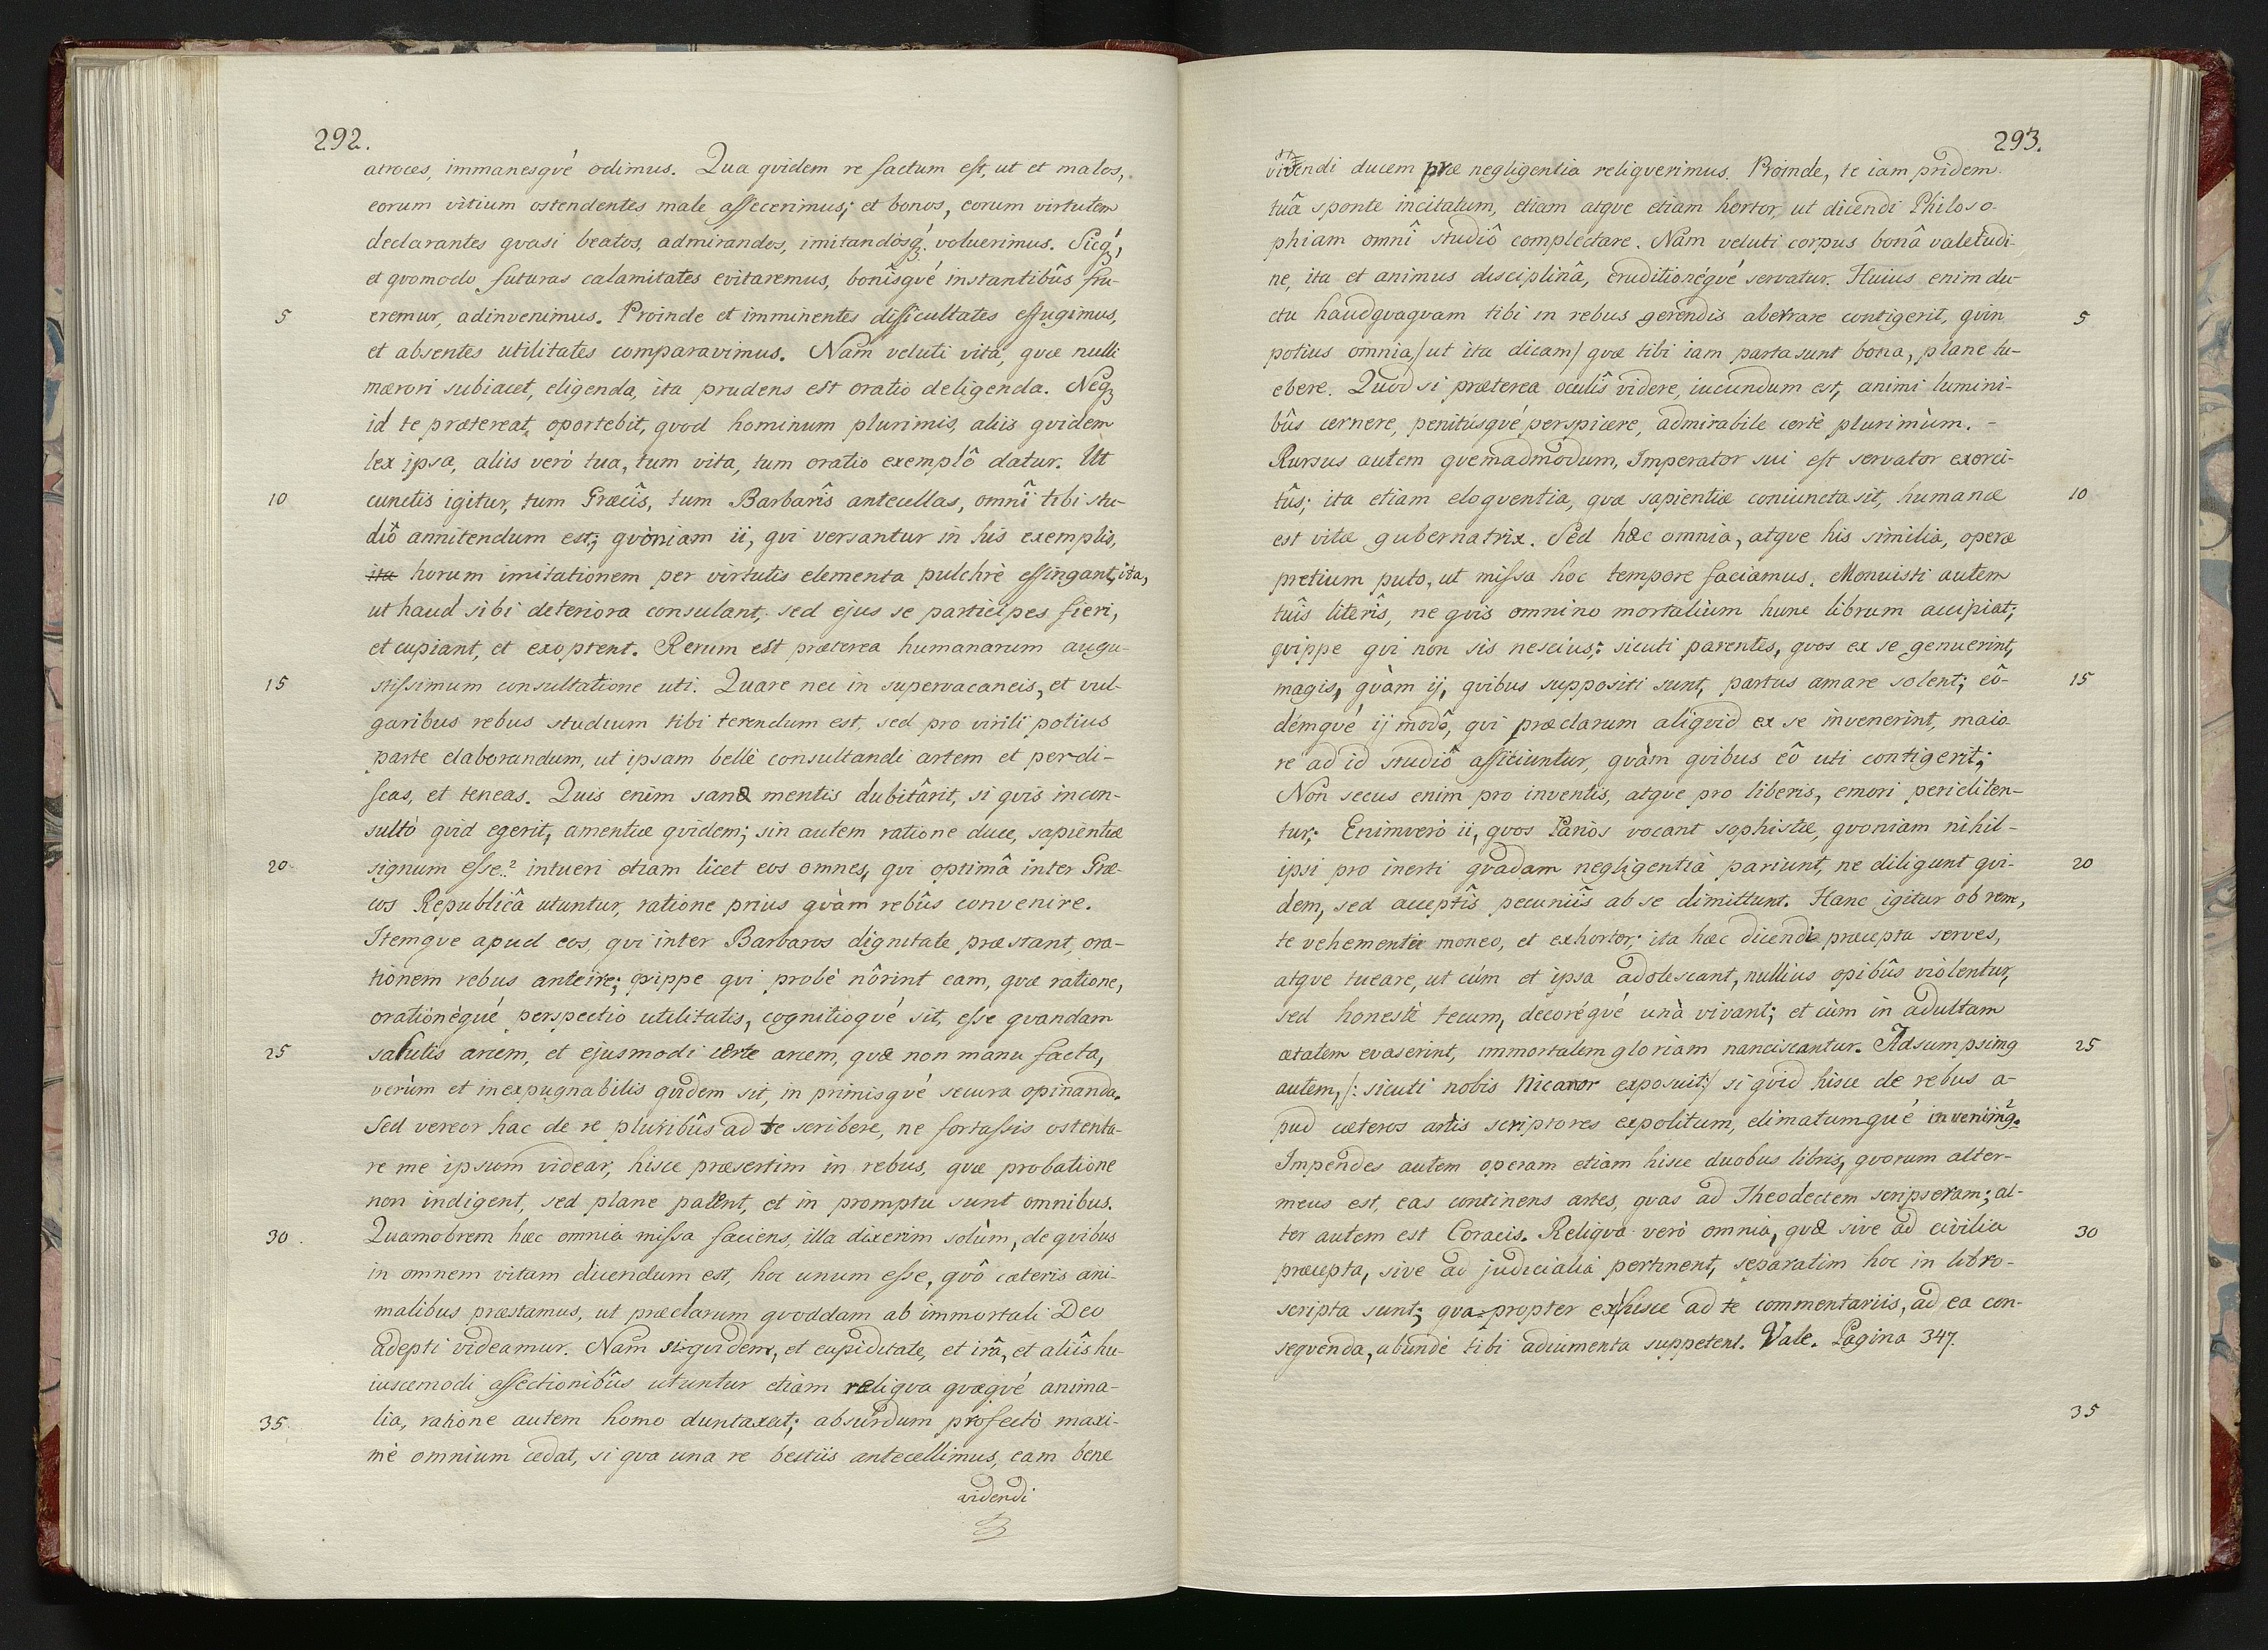 292.
atroces, immanesqvé odimus. Qua qvidem re factum est, ut et malos,
eorum vitium ostendentes male affecerimus; et bonos, eorum virtutem
declarantes qvasi beatos, admirandos, imitandósqꝫ voluerimus. Sicqꝫ,
et qvomodo futuras calamitates evitaremus, bonîsqvé instantibûs fru-
5 eremur, adinvenimus. Proinde et imminentes difficultates effugimus,
et absentes utilitates comparavimus. Nam veluti vita, qvæ nulli
mærori subiacet, eligenda, ita prudens est oratio deligenda. Neqꝫ
id te prætereat oportebit, qvod hominum plurimis, aliis qvidem
lex ipsa, aliis verò tua, tum vita, tum oratio exemplô datur. Ut
10 cunctis igitur, tum Græcîs, tum Barbarîs antecellas, omnî tibi stu-
diô annitendum est; qvoniam ii, qvi versantur in his exemplis,
ita horum imitationem per virtutis elementa pulchrè effingant, ita,
ut haud sibi deteriora consulant, sed ejus se participes fieri,
et cupiant, et exoptent. Rerum est præterea humanarum augu-
15 stissimum consultatione uti. Quare nec in supervacaneis, et vul-
garibus rebus studium tibi terendum est, sed pro virili potius
parte elaborandum, ut ipsam bellè consultandi artem et perdi-
scas, et teneas. Quis enim sanæ mentis dubitârit, si qvis incon-
sultò qvid egerit, amentiæ qvidem; sin autem ratione duce, sapientiæ
20 signum esse? intueri etiam licet eos omnes, qvi optimâ inter Græ-
cos Republicâ utuntur, ratione prius qvàm rebûs convenire.
Itemqve apud eos, qvi inter Barbaros dignitate præstant, ora-
tionem rebus anteire; qvippe qvi probè nôrint eam, qvæ ratione,
orationèqué perspectio utilitatis, cognitioqvé sit, esse qvandam
25 salutis arcem, et ejusmodi certe arcem, qvæ non manu facta,
verùm et inexpugnabilis qvidem sit, in primisqvé secura opinanda.
Sed vereor hac de re pluribûs ad te scribere, ne fortassis ostenta-
re me ipsum videar, hisce præsertim in rebus, qvæ probatione
non indigent, sed plane patent, et in promptu sunt omnibus.
30. Quamobrem hæc omnia missa faciens, illa dixerim solùm, de qvibus
in omnem vitam dicendum est, hoc unum esse, qvô cæteris ani-
malibus præstamus, ut præclarum qvoddam ab immortali Deo
adepti videamur. Nam siqvidem, et cupiditate, et irâ, et aliîs hu-
iuscemodi affectionibûs utuntur etiam reliqva qvæqvé anima-
35. lia, ratione autem homo duntaxat; absurdum profectò maxi-
mè omnium cedat, si qva una re bestiis antecellimus, eam bene
videndi
293.
vivendi ducem præ negligentia reliqverimus. Proinde, te iam pridem
tuâ sponte incitatum, etiam atqve etiam hortor, ut dicendi Philoso-
phiam omnî studiô complectare. Nam veluti corpus bonâ valetudi-
ne, ita et animus disciplinâ, eruditionéqvé servatur. Huius enim du-
ctu haudqvaqvam tibi in rebus gerendis aberrare contigerit, qvin 5
potius omnia, /ut ita dicam/ qvæ tibi iam parta sunt bona, plane tu-
ebere. Quod si præterea oculîs videre, iucundum est, animi lumini-
bûs cernere, penitúsqvé perspicere, admirabile certè plurimùm. -
Rursus autem qvemadmodum, Imperator sui est servator exerci-
tûs; ita etiam eloqventia, qvæ sapientiæ coniuncta sit, humanæ 10
est vitæ gubernatrix. Sed hæc omnia, atqve his similia, operæ
pretium puto, ut missa hoc tempore faciamus. Monuisti autem
tuîs literîs, ne qvis omnino mortalium hunc librum accipiat;
qvippe qvi non sis nescius; sicuti parentes, qvos ex se genuerint,
magis, qvàm ij, qvibus suppositi sunt, partus amare solent; eô- 15
démqvé ij modô, qvi præclarum aliqvid ex se invenerint, maio
re ad id studiô afficiuntur, qvàm qvibus eô uti contigerit;
Non secus enim pro inventis, atqve pro liberis, emori pericliten-
tur; Enimverò ii, qvos Parios vocant sophistæ, qvoniam nihil-
ipsi pro inerti qvadam negligentià pariunt, ne diligunt qvi- 20
dem, sed acceptîs pecuniîs ab se dimittunt. Hanc igitur ob rem,
te vehementer moneo, et exhortor; ita hæc dicendi præcepta serves,
atqve tueare, ut cúm et ipsa adolescant, nullius opibûs violentur,
sed honestè tecum, decoréqvé unà vivant; et cùm in adultam
ætatem evaserint, immortalem gloriam nanciscantur. Adsumpsimꝰ 25
autem, /: sicuti nobis Nicanor exposuit:/ si qvid hisce de rebus a-
pud cæteros artis scriptores expolitum, elimatumqué invenimꝰ.
Impendes autem operam etiam hisce duobus libris, qvorum alter-
meus est, eas continens artes, qvas ad Theodectem scripseram; al-
ter autem est Coracis. Reliqva verò omnia, qvæ sive ad civilia 30
præcepta, sive ad judicialia pertinent, separatim hoc in libro-
scripta sunt; qva-propter ex hisce ad te commentariis, ad ea con-
seqvenda, abundè tibi adiumenta suppetent. Vale. Pagina 347.
35